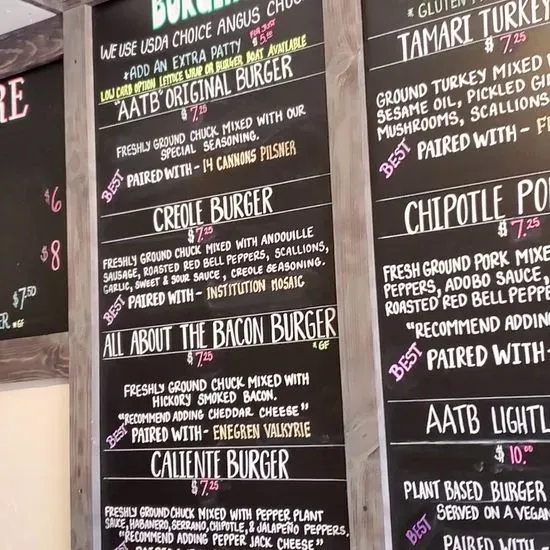 RE
$6
$8
$7.50
*GF
BURGER
WE USE USDA CHOICE ANGUS CHUCK
*ADD AN EXTRA PATTY FOR JUST $5.00
LOW CARB OPTION LETTUCE WRAP OR BURGER BOAT AVAILABLE
"AATB" ORIGINAL BURGER
$7.25
FRESHLY GROUND CHUCK MIXED WITH OUR
SPECIAL SEASONING.
BEST PAIRED WITH - 14 CANNONS PILSNER
CREOLE BURGER
$7.25
FRESHLY GROUND CHUCK MIXED WITH ANDOUILLE
SAUSAGE, ROASTED RED BELL PEPPERS, SCALLIONS,
GARLIC, SWEET & SOUR SAUCE, CREOLE SEASONING.
BEST PAIRED WITH - INSTITUTION MOSAIC
ALL ABOUT THE BACON BURGER
$7.25 *GF
FRESHLY GROUND CHUCK MIXED WITH
HICKORY SMOKED BACON.
"RECOMMEND ADDING CHEDDAR CHEESE"
BEST PAIRED WITH - ENEGREN VALKYRIE
CALIENTE BURGER
$7.25
FRESHLY GROUND CHUCK MIXED WITH PEPPER PLANT
SAUCE, HABANERO, SERRANO, CHIPOTLE, & JALAPEÑO PEPPERS.
"RECOMMEND ADDING PEPPER JACK CHEESE"
* GLUTEN
TAMARI TURKEY
$7.25
GROUND TURKEY MIXED
SESAME OIL, PICKLED GI
MUSHROOMS, SCALLIONS
BEST PAIRED WITH - FI
CHIPOTLE PO
$7.25
FRESH GROUND PORK MIXE
PEPPERS, ADOBO SAUCE,
ROASTED RED BELL PEPPE
"RECOMMEND ADDING
BEST PAIRED WITH-
AATB LIGHTL
$10.00
PLANT BASED BURGER
SERVED ON A VEGAN
BEST PAIRED WITH -